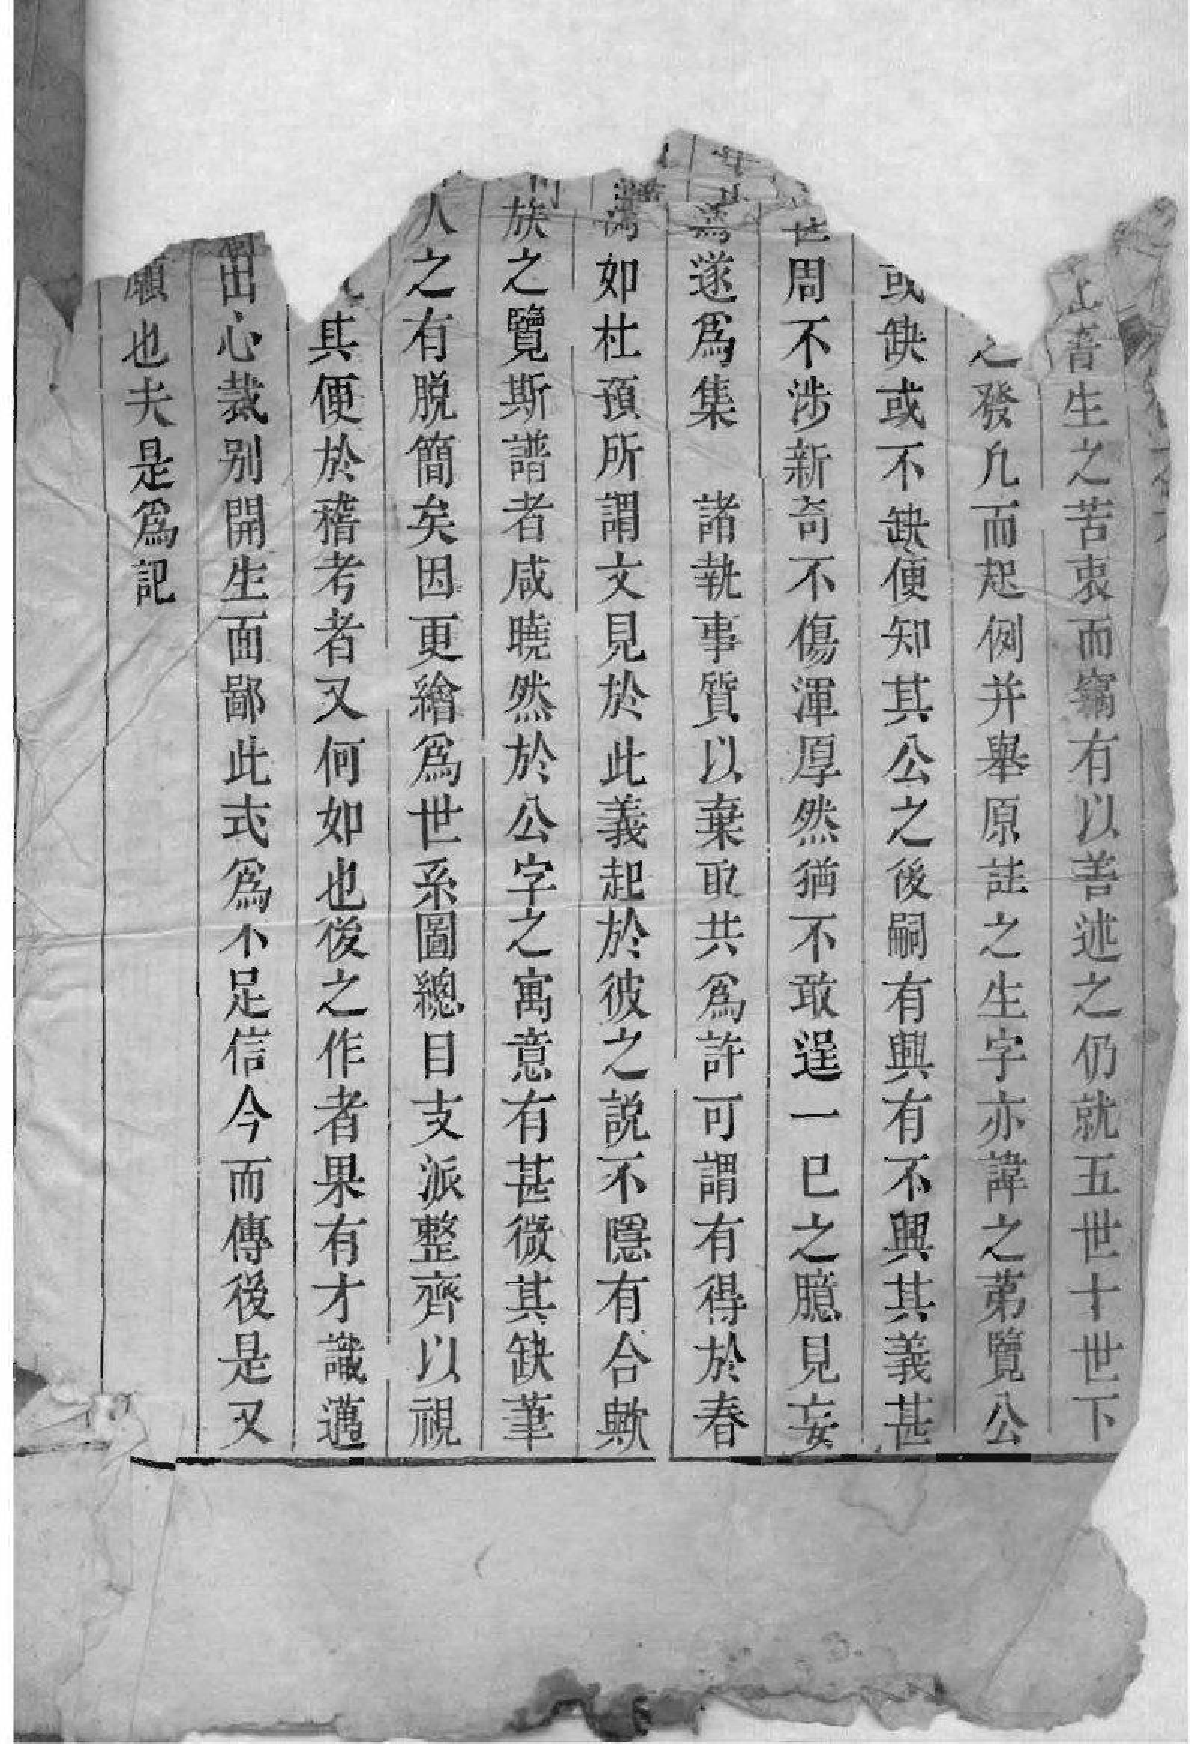 生之苦衷而竊有以善述之仍就五世十世下
之發凡而起例并舉原註之生字亦諱之苐覽公
或缺或不缺便知其公之後嗣有興有不興其義甚
周不涉新奇不傷渾厚然猶不敢逞一巳之臆見妄
為遂爲集 諸執事質以棄取共爲許可謂有得於春
如杜預所謂文見於此義起於彼之説不隱有合歟
族之覽斯譜者咸曉然於公字之寓意有甚微其缺筆
人之有脱簡矣因更繪爲世系圖總目支派整齊以視
其便於稽考者又何如也後之作者果有才識邁
出心裁别開生面鄙此式爲不足信今而傳後是又
願也夫是爲記